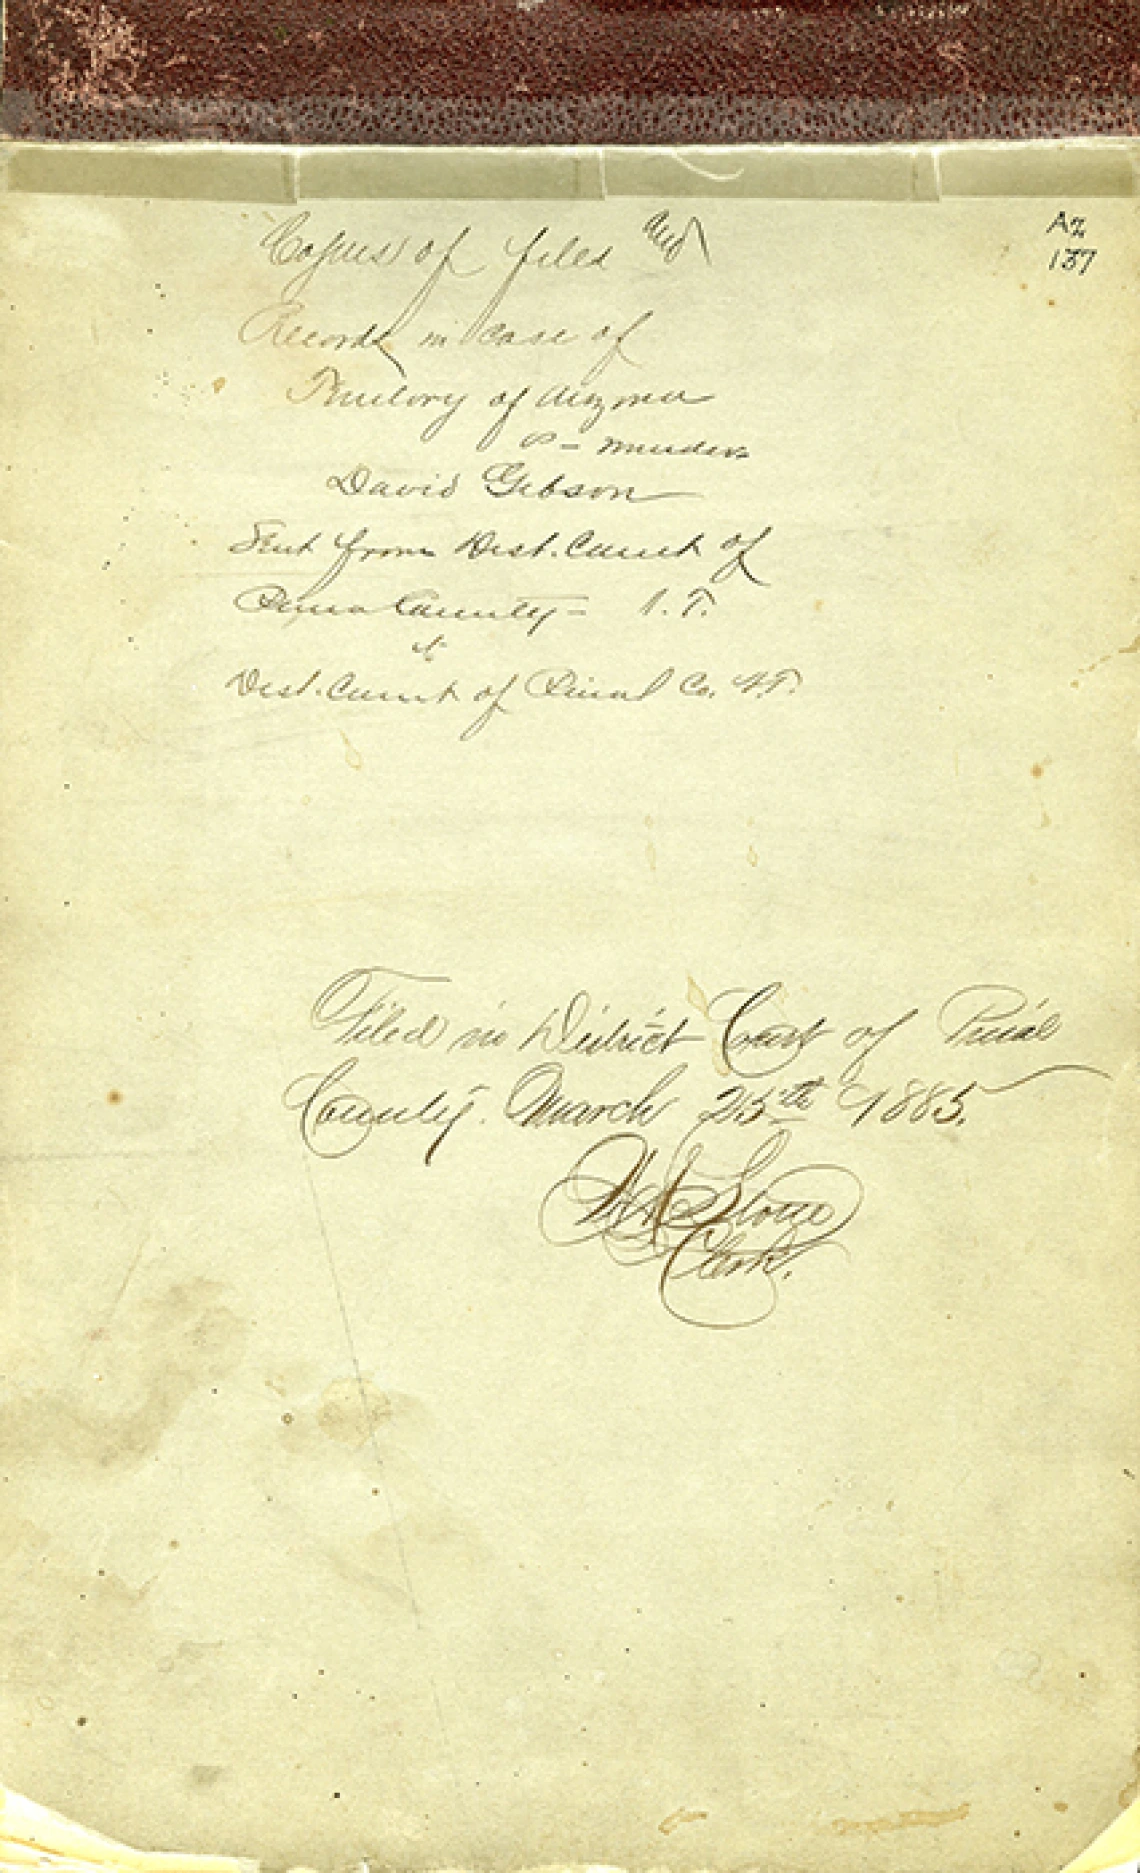 Az
137
Copies of files and
Records in case of
Territory of Arizona
vs - Murder
David Gibson
Sent from Dist. Court of
Pima County - A.T.
to
Dist. Court of Pinal Co. A.T.
Filed in District Court of Pinal
County. March 25th 1885.
Sloane
Clerk.